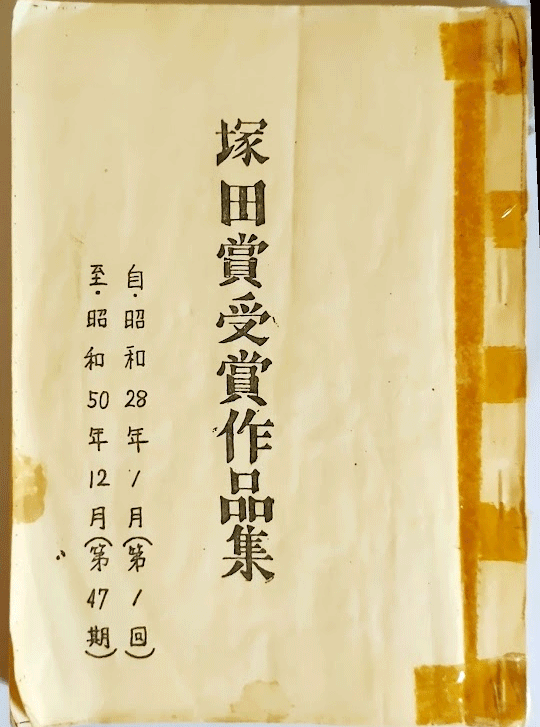 塚田賞受賞作品集
自・昭和28年1月(第1回)
至・昭和50年12月(第47期)